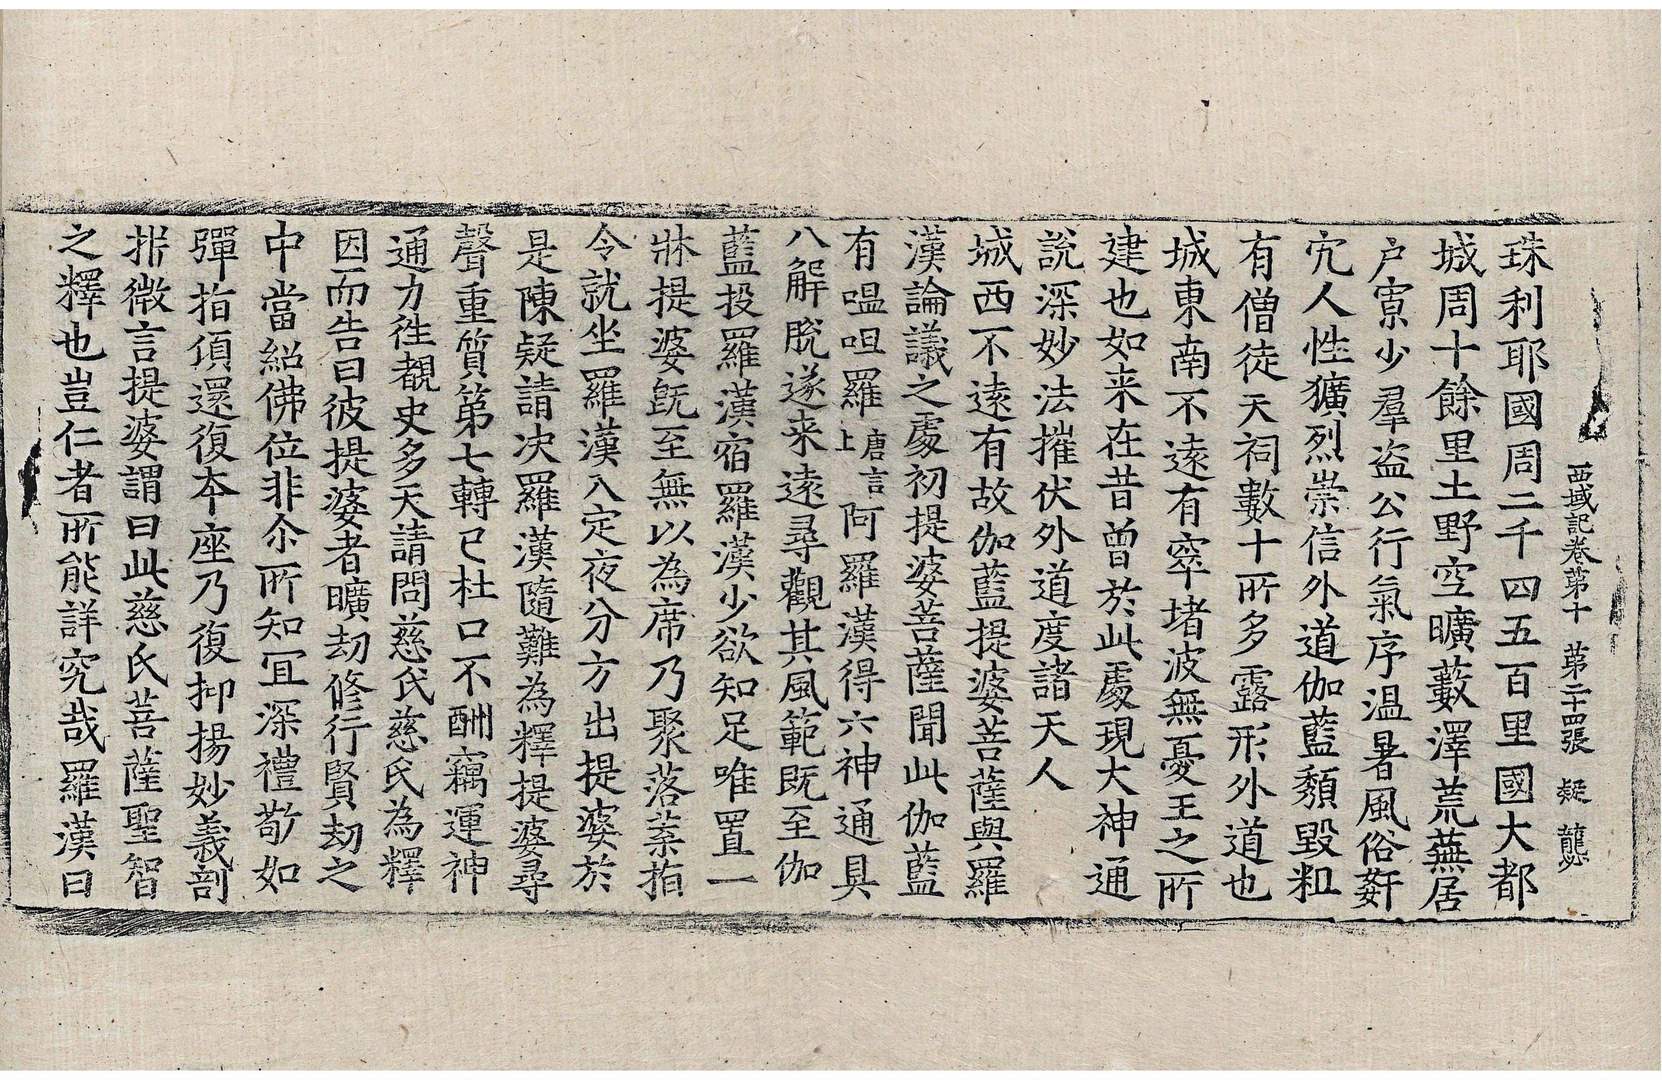 西域記卷第十 第二十四張 疑 龔
珠利耶國周二千四五百里國大都
城周十餘里土野空曠藪澤荒蕪居
户寡少羣盗公行氣序温暑風俗姧
宄人性獷烈崇信外道伽藍頽毀粗
有僧徒天祠數十所多露形外道也
城東南不遠有窣堵波無憂王之所
建也如来在昔曾於此處現大神通
說深妙法摧伏外道度諸天人
城西不遠有故伽藍提婆菩薩與羅
漢論議之處初提婆菩薩聞此伽藍
有嗢呾羅唐言上阿羅漢得六神通具
八解脫遂来遠尋觀其風範既至伽
藍投羅漢宿羅漢少欲知足唯置一
牀提婆既至無以為席乃聚落葉指
令就坐羅漢入定夜分方出提婆於
是陳疑請决羅漢隨難為釋提婆尋
聲重質第七轉已杜口不酬竊運神
通力徃覩史多天請問慈氏慈氏為釋
因而告曰彼提婆者曠劫修行賢劫之
中當紹佛位非尒所知冝深禮敬如
彈指頃還復本座乃復抑揚妙義剖
析微言提婆謂曰此慈氏菩薩聖智
之釋也豈仁者所能詳究哉羅漢曰